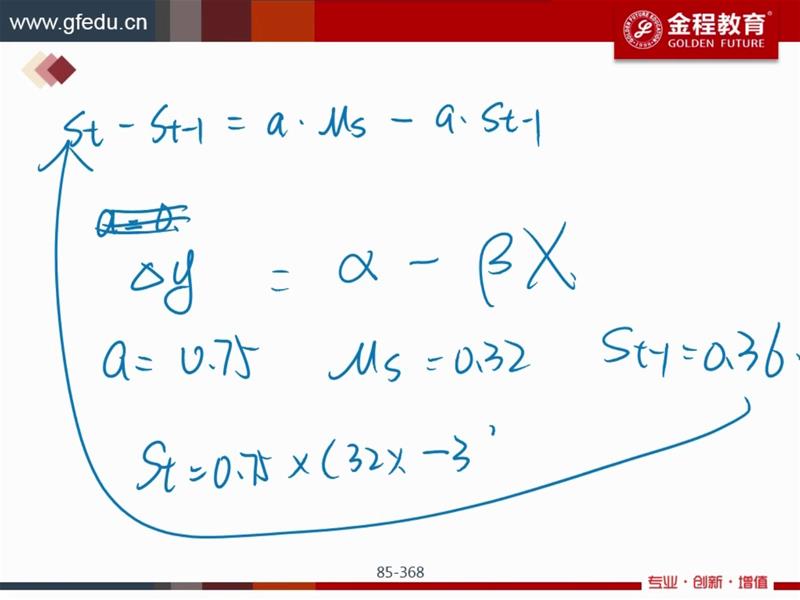 www.gfedu.cn
金程教育
GOLDEN FUTURE
St - St-1 = a · μs - a · St-1
a = 0.
Δy = α - βX
a = 0.75 μs = 0.32 St-1 = 0.36
St = 0.75 × (32% - 3
85-368
专业·创新·增值